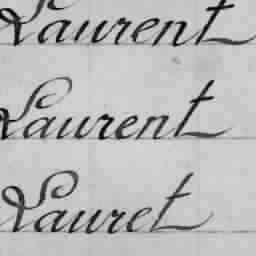 Laurent
Laurent
Lauret